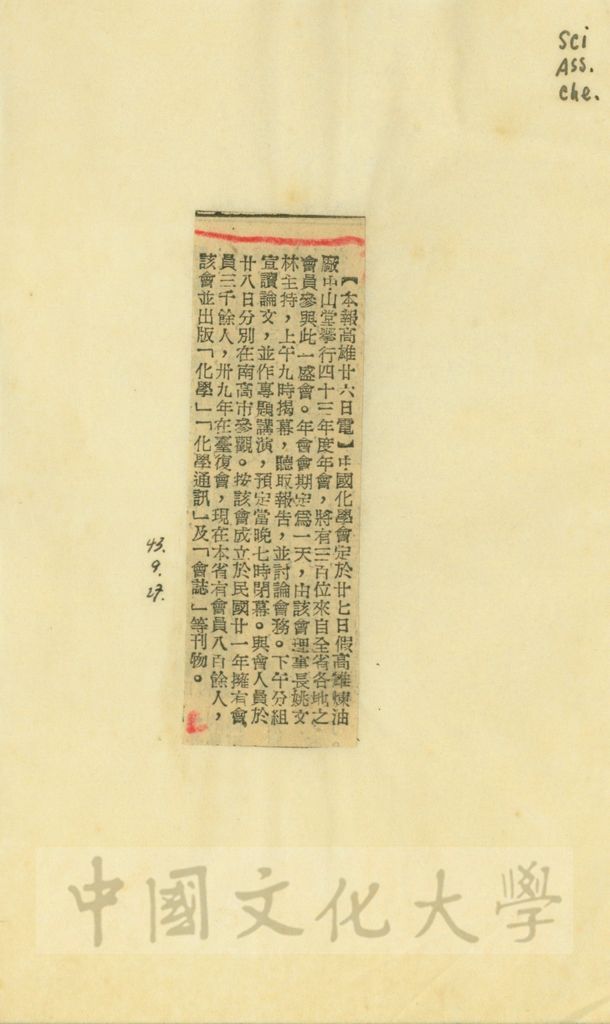 Sci
Ass.
Che.
【本報高雄廿六日電】中國化學會定於廿七日假高雄煉油
廠中山堂舉行四十三年度年會，將有三百位來自全省各地之
會員參與此一盛會。年會會期定爲一天，由該會理事長姚文
林主持，上午九時揭幕，聽取報告，並討論會務。下午分組
宣讀論文，並作專題講演，預定當晚七時閉幕。與會人員於
廿八日分別在南高市參觀。按該會成立於民國廿一年擁有會
員三千餘人，卅九年在臺復會，現在本省有會員八百餘人，
該會並出版「化學」「化學通訊」及「會誌」等刊物。
43.
9.
27.
中國文化大學